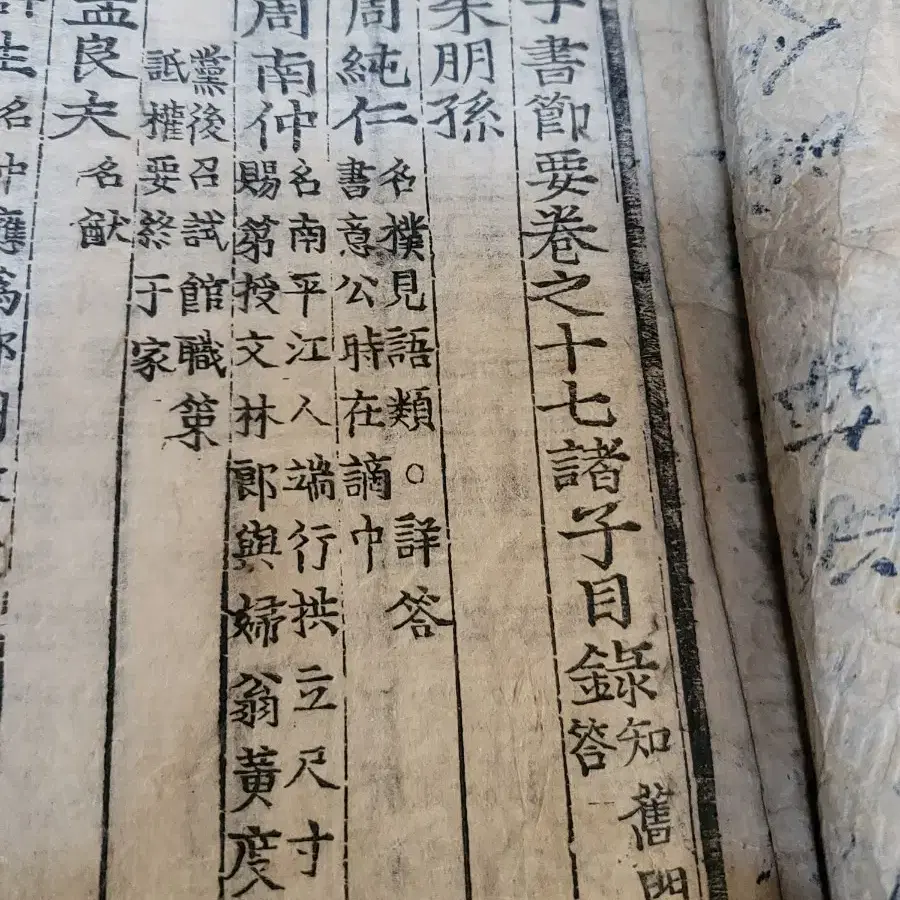 子書節要卷之十七諸子目錄
知舊門
答
朱朋孫
周純仁
名樸見語類○詳答
書意公時在謫中
周南仲
名南平江人端行拱立尺寸
賜第授文林郎與婦翁黃度
黨後召試館職策
詆權要終于家
孟良夫
名猷
生
名中應爲